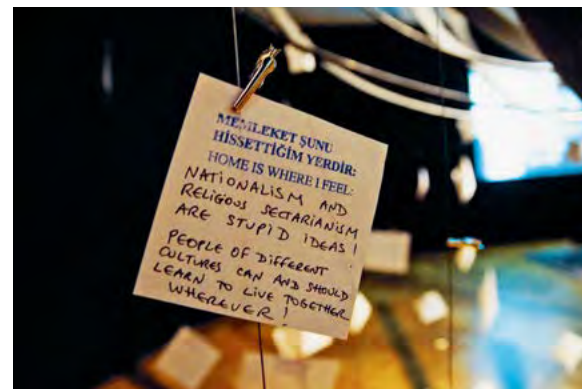 MEMLEKET ŞUNU
HİSSETTİĞİM YERDİR:
HOME IS WHERE I FEEL:
NATIONALISM AND
RELIGIOUS SECTARIANISM
ARE STUPID IDEAS!
PEOPLE OF DIFFERENT
CULTURES CAN AND SHOULD
LEARN TO LIVE TOGETHER
WHEREVER!